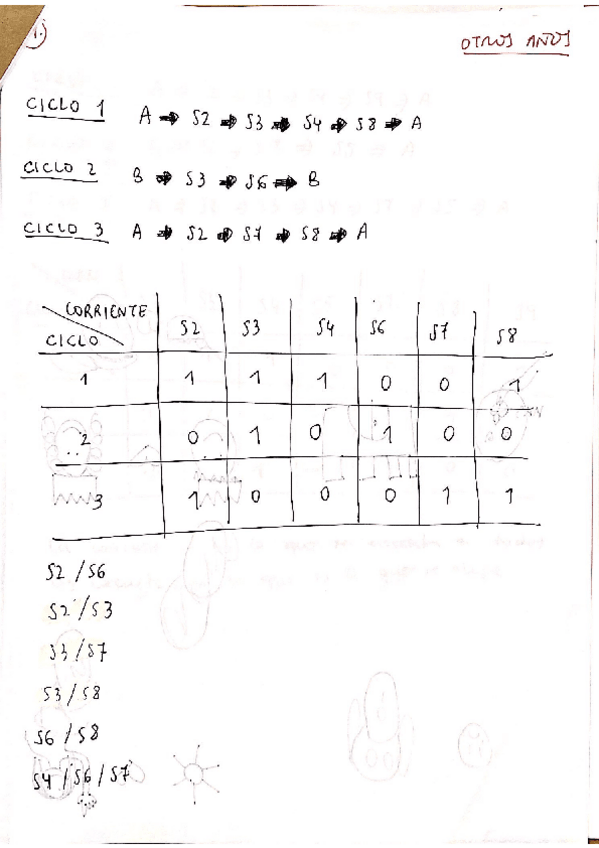 1.)
OTROS AÑOS
CICLO 1 A → S2 → S3 → S4 → S8 → A
CICLO 2 B → S3 → S6 → B
CICLO 3 A → S2 → S7 → S8 → A
CORRIENTE
CICLO S2 S3 S4 S6 S7 S8
1 1 1 1 0 0 1
2 0 1 0 1 0 0
3 1 0 0 0 1 1
S2 / S6
S2 / S3
S3 / S7
S3 / S8
S6 / S8
S4 / S6 / S7